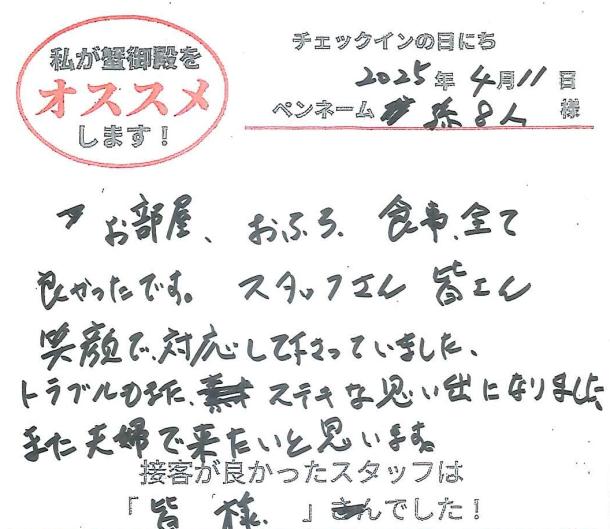 私が蟹御殿を
オススメ
します!
チェックインの日にち
2025年 4月11日
ペンネーム 孫8人 様
お部屋、おふろ、食事、全て
良かったです。スタッフさん 皆さん
笑顔で、対応して下さっていました、
トラブルもまた、ステキな思い出になりました、
また夫婦で来たいと思います。
接客が良かったスタッフは
「皆様」さんでした!